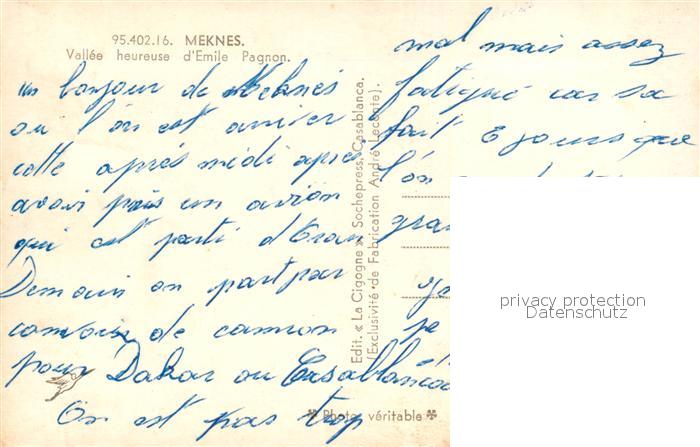 95.402.16. MEKNES.
Vallée heureuse d'Emile Pagnon.
un bonjour de Meknès
ou l'on est arriver
cette après midi apres
avoir pris un avion
qui est parti d'Oran
Demain on part par
convoi de camion
pour Dakar ou Casablanca
On est pas trop
mal mais assez
fatigué car sa
fait 2 jours que
l'on
gran
je
Edit. « La Cigogne » Sochepress, Casablanca.
(Exclusivité de Fabrication André Leconte).
Photo véritable
privacy protection
Datenschutz